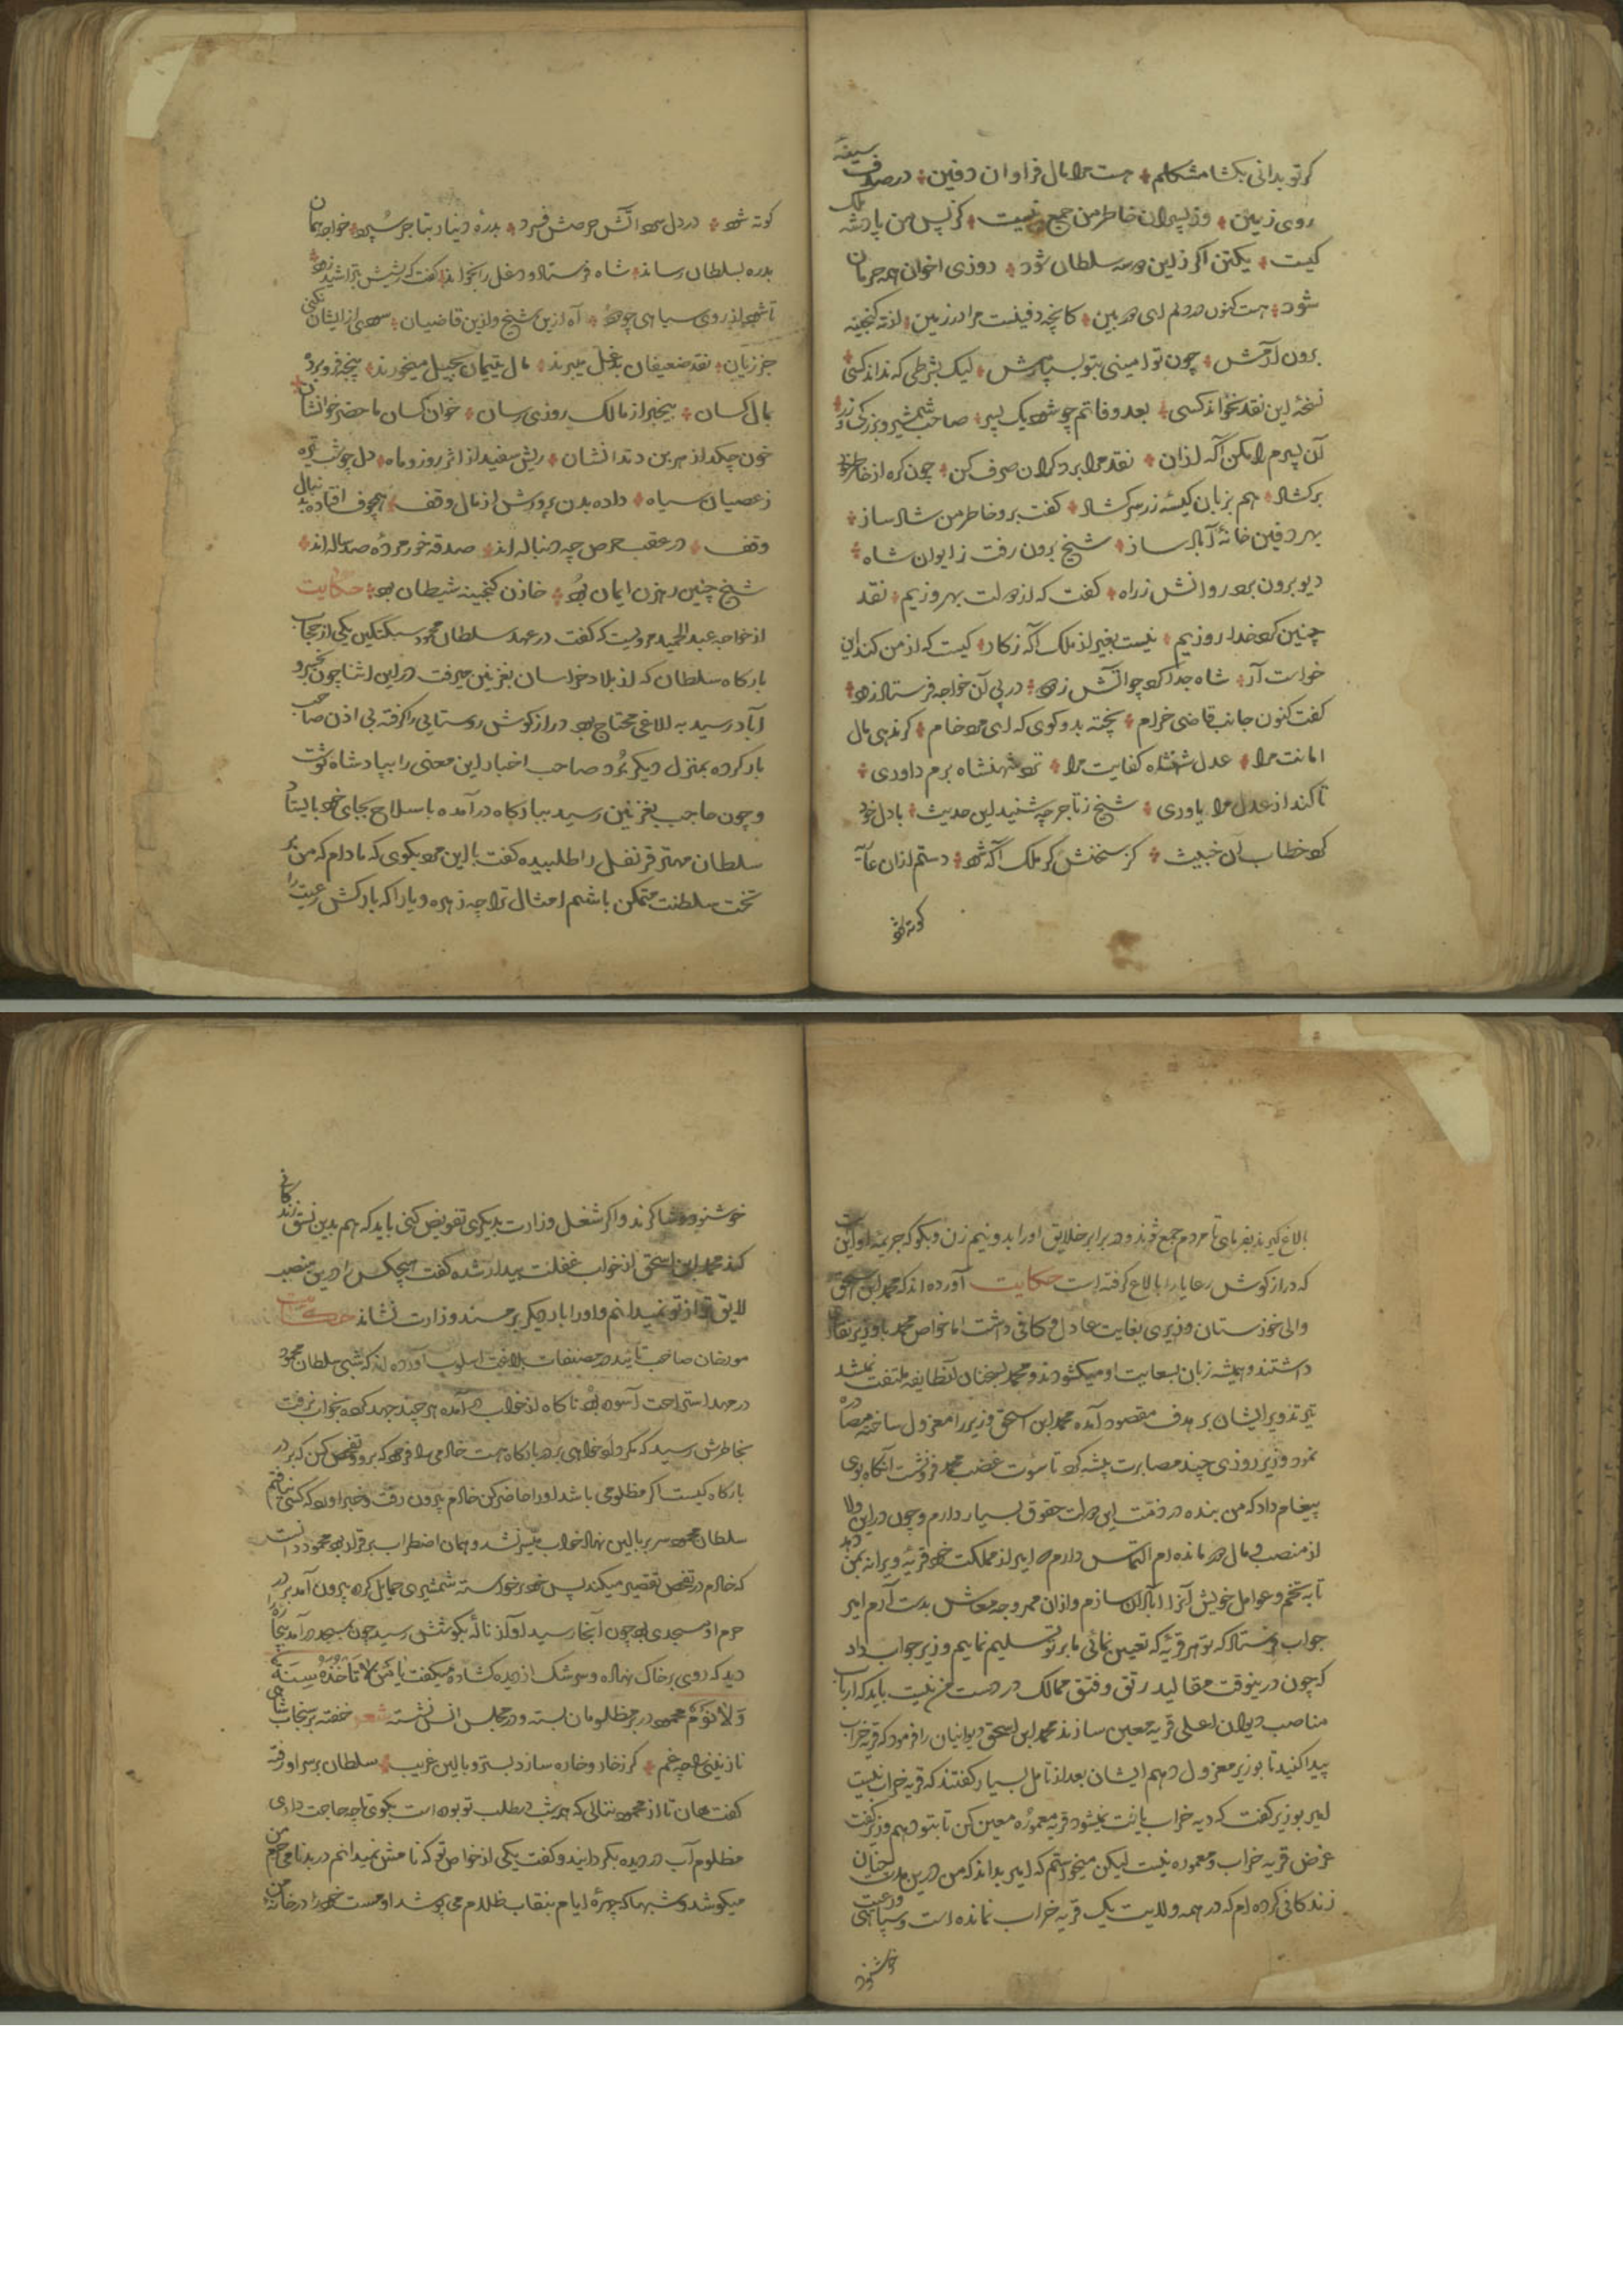 کر تو بدانی بکشا مشکلم هست مرا مال فراوان دفین در صدف سینهٔ
روی زمین وز پسران خاطر من جمع نیست کز پس من پادشه ملک
کیست یکتن اکر زین همه سلطان شود روزی اخوان همه حرمان
شود هست کنون در دلم ای دوربین کانچه دفینست مرا در زمین از ته کنجینه
برون آرمش چون تو امینی بتو بسپارمش لیک بشرطی که نداند کسی
نسخهٔ این نقد نخواند کسی بعد وفاتم چو شود یک پسر صاحب شمشیر و بزرکی و زر
آن پسرم را بکن آکه ازان نقد مرا بر دکران صرف کن چون کره از خاطر خود
برکشاد هم بزبان کیسهٔ زر سر کشاد کفت برو خاطر من شاد ساز
بهر دفین خانهٔ آباد ساز شیخ برون رفت ز ایوان شاه
دیو برون برد روانش ز راه کفت که از دولت بهروزیم نقد
چنین کرد خدا روزیم نیست بغیر از ملک آکه ز کار کیست که از من کند این
خواست آر شاه جدا کرد چو آتش زده در پی آن خواجه فرستاد زود
کفت کنون جانب قاضی خرام پخته بدو کوی که ای مرد خام کر ندهی مال
امانت مرا عدل شهنشاه کفایت مرا نزد شهنشاه برم داوری
تا کند از عدل مرا یاوری شیخ ز تاجر چو شنید این حدیث با دل خود
کرد خطاب آن خبیث کز سخنش کر ملک آکه شود دستم ازان
کوته شود
کوته شود در دل او آتش حرصش فسرد بدرهٔ دینار بتاجر سپرد خواجه همان
بدره بسلطان رساند شاه فرستاد و دغل را بخواند کفت که ریشش بتراشید زود
تا شود از روی سیاهی چو دود آه ازین شیخ و ازین قاضیان سودی از ایشان نکنی
جز زیان نقد ضعیفان بدغل میبرند مال یتیمان بحیل میخورند پنجه فرو برده
بمال کسان بیخبر از مالک روزی رسان خوان کسان ما حضر خوانشان
خون چکد از هر بن دندانشان ریش سفید از اثر روز و ماه دل چو شب تیره
ز عصیان سیاه داده بدن پرورش از مال وقف همچو ف افتاده بدنبال
وقف در عقب حرص چه دنباله اند صدقه خور مردهٔ صد ساله اند
شیخ چنین رهزن ایمان بود خازن کنجینه شیطان بود حکایت
از خواجه عبد الحمید مرویست که کفت در عهد سلطان محمود سبکتکین یکی از حجاب
بارکاه سلطان که از بلاد خراسان بغزنین میرفت در این اثنا چون بخسرو
آباد رسید به الاغی محتاج بود درازکوش روستایی را کرفته بی اذن صاحب
بار کرده بمنزل دیکر برد صاحب اخبار این معنی را بپادشاه نوشت
و چون حاجب بغزنین رسید ببارکاه درآمده با سلاح بجای خود بایستاد
سلطان مهتر قرنفل را طلبیده کفت با این مرد بکوی که مادام که من بر
تخت سلطنت متمکن باشم امثال ترا چه زهره و یارا که بارکش رعیت را
بالاغ کیرند بفرمای تا مردم جمع شوند و در برابر خلایق او را بدو نیم زن و بکو که جریمه او این
که درازکوش رعایا را بالاغ کرفته است حکایت آورده اند که محمد ابن اسحق
والی خوزستان وزیری بغایت عادل و کافی داشت اما خواص محمد با وزیر نقار
داشتند و همیشه زبان بسعایت او میکشودند و محمد بسخنان آنطایفه ملتفت نمیشد
تیر تزویر ایشان بر هدف مقصود آمده محمد ابن اسحق وزیر را معزول ساخته مصادره
نمود وزیر روزی چند مصابرت پیشه کرد تا سورت غضب محمد فرو نشست آنکاه بوی
پیغام داد که من بنده در ذمت این دولت حقوق بسیار دارم و چون در این ولا
از منصب و مال در مانده ام التماس دارم که امیر از مملکت خود قریهٔ ویرانه بمن دهد
تا به تخم و عوامل خویش آنرا آبادان سازم و ازان ممر وجه معاش بدست آرم امیر
جواب فرستاد که تو هر قریهٔ که تعیین نمائی ما بر تو تسلیم نماییم وزیر جواب داد
که چون درینوقت مقالید رتق و فتق ممالک در دست من نیست باید که ارباب
مناصب دیوان اعلی قریه معین سازند محمد ابن اسحق دیوانیان را فرمود که قریه خراب
پیدا کنید تا بوزیر معزول دهیم ایشان بعد از تامل بسیار کفتند که قریه خراب نیست
امیر بوزیر کفت که دیه خراب یافت نمیشود قریه معموره معین کن تا بتو دهیم وزیر کفت
غرض قریه خراب و معموره نیست لیکن میخواستم که امیر بداند که من درین مدت چنان
زندکانی کرده ام که در همه ولایت یک قریه خراب نمانده است و سپاهی و رعیت
خوشنود
خوشنود و شاکرند و اکر شغل وزارت بدیکری تفویض کنی باید که هم بدین نسق زندکانی
کند محمد ابن اسحق از خواب غفلت بیدار شده کفت هیچکس را درین منصب
لایق تر از تو نمیدانم و او را بار دیکر بر مسند وزارت نشاند حکایت
مورخان صاحب تائید در مصنفات بلاغت اسلوب آورده اند که شبی سلطان محمود
در مهد استراحت آسوده بود ناکاه از خواب درآمده هر چند جهد کرد بخواب نرفت
بخاطرش رسید که مکر دادخواهی بر در بارکاه هست خادمی را فرمود که برو و تفحص کن که بر در
بارکاه کیست اکر مظلومی باشد او را حاضر کن خادم بیرون رفت و خبر آورد که کسی نیافتم
سلطان محمود سر ببالین نهاد خواب میسر نشد و همان اضطراب برقرار بود محمود دانست
که خادم در تفحص تقصیر میکند پس خود برخواسته شمشیری حمایل کرده بیرون آمد بر در
حرم او مسجدی بود چون آنجا رسید آواز نالهٔ بکوشش رسید چون بمسجد درآمد بیچارهٔ را
دید که روی بر خاک نهاده و سرشک از دیده کشاده میکفت یا من لا تَأخُذُهُ سِنَةٌ
وَلا نَومٌ محمود در بر مظلومان بسته و در مجلس انس نشسته شعر خفته بر سنجاب شاهی
نازنینی را چه غم کر ز خار و خاره سازد بستر و بالین غریب سلطان بر سر او رفته
کفت هان تا از محمود ننالی که همه شب در طلب تو بوده است بکوی تا چه حاجت داری
مظلوم آب در دیده بکردانید و کفت یکی از خواص تو که نامش نمیدانم در بدنامی حرم من
میکوشد و شبها که چهرهٔ ایام بنقاب ظلام می پوشد او مست خود را در خانه من